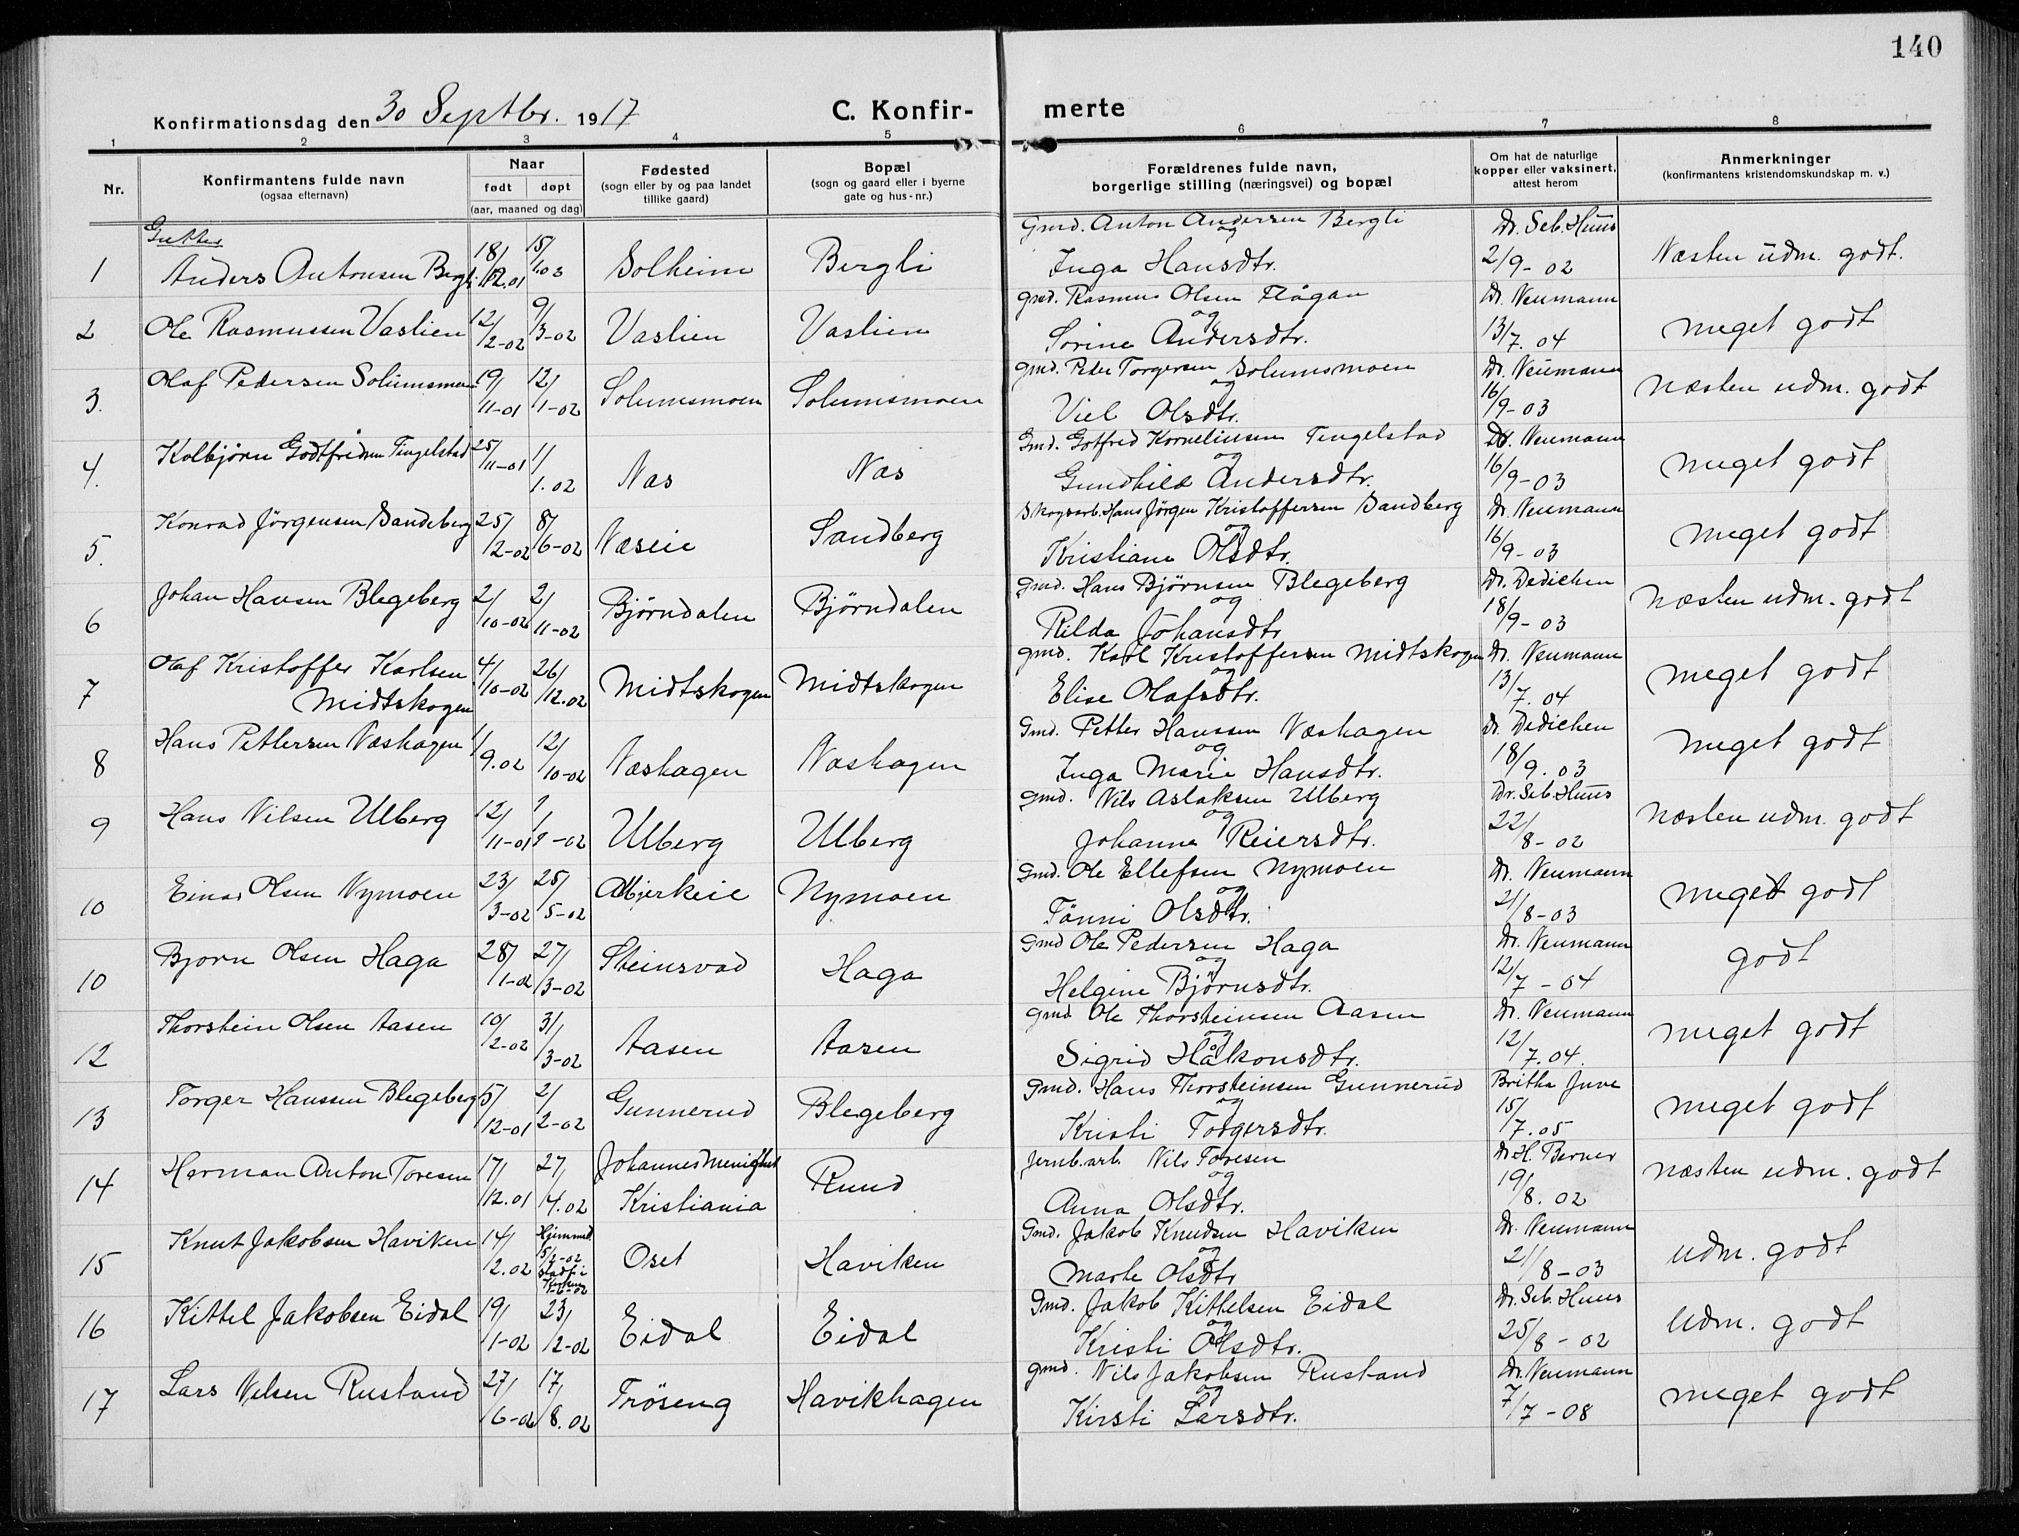 140
Konfirmationsdag den 30 Septbr. 1917 C. Konfir- merte
1 2 3 4 5 6 7 8
Nr. Konfirmantens fulde navn (ogsaa efternavn) Naar født døpt (aar, maaned og dag) Fødested (sogn eller by og paa landet tillike gaard) Bopæl (sogn og gaard eller i byerne gate og hus-nr.) Forældrenes fulde navn, borgerlige stilling (næringsvei) og bopæl Om hat de naturlige kopper eller vaksinert, attest herom Anmerkninger (konfirmantens kristendomskundskap m. v.)
Gutter
1 Anders Antonsen Bergli 18/12.01 15/1.03 Solheim Bergli Gmd. Anton Andersen Bergli og Inga Hansdtr. Dr. Seb. Huus 2/9-02 Næsten udm. godt.
2 Ole Rasmussen Vaslien 12/2-02 9/3-02 Vaslien Vaslien gmd. Rasmus Olsen Flågan og Sørine Andersdtr. Dr. Neumann 13/7.04 meget godt
3. Olaf Pedersen Solumsmoen 19/11-01 12/1-02 Solumsmoen Solumsmoen gmd. Peder Torgersen Solumsmoen og Viel Olsdtr. Dr. Neumann 16/9-03 næsten udm. godt
4. Kolbjørn Godtfredsen Tingelstad 25/11-01 1/1.02 Næs Næs Gmd. Gotfred Korneliusen Tingelstad og Gundhild Andersdtr. Dr. Neumann 16/9-03 meget godt
5. Konrad Jörgensen Sandeberg 25/2-02 8/6-02 Næseie Sandberg Skogsarb. Hans Jörgen Kristoffersen Sandberg og Kristiane Olsdtr. Dr. Neumann 16/9-03 meget godt
6 Johan Hansen Blegeberg 2/10-02 2/11-02 Bjørndalen Bjørndalen gmd. Hans Bjørnsen Blegeberg og Rilda Johansdtr Dr. Dedichen 18/9-03 næsten udm. godt
7 Olaf Kristoffer Karlsen Midtskogen 4/10-02 26/12.02 Midtskogen Midtskogen gmd. Karl Kristoffersen Midtskogen og Elise Olafsdtr. Dr. Neumann 13/7.04 meget godt
8 Hans Pettersen Næshagen 1/9.02 12/10-02 Næshagen Næshagen Gmd. Petter Hanssen Næshagen og Inga Marie Hansdtr. Dr. Dedichen 18/9.03 meget godt
9 Hans Nilsen Ulberg 12/11-01 1/1-02 Ulberg Ulberg gmd. Nils Aslaksen Ulberg og Johanne Reiersdtr. Dr. Seb. Huus 22/8-02 næsten udm. godt
10 Einar Olsen Nymoen 23/3-02 25/5-02 Nymoen Gmd. Ole Ellefsen Nymoen og Tönni Olsdtr. Dr. Neumann 21/8-03 meget godt
10 Bjorn Olsen Haga 28/1-02 27/3-02 Steinsvad Haga Gmd Ole Pedersen Haga og Helgine Bjørnsdtr. Dr. Neumann 12/7-04 godt
12 Thorstein Olsen Aasen 10/2-02 31/3-02 Aasen Aasen gmd Ole Thorsteinsen Aasen og Sigrid Håkonsdtr. Dr. Neumann 12/7.04. meget godt
13 Torger Hanssen Blegeberg 5/12-01 2/2-02 Gunnerud Blegeberg gmd. Hans Thorsteinsen Gunnerud og Kristi Torgersdtr. Britha Juve 15/7.05 meget godt
14 Herman Anton Toresen 17/12.01 27/4.02 Johannesmenighet Kristiania Ruud Jernb.arb. Nils Toresen og Anna Olsdtr. Dr H. Berner 19/8.02 næsten udm. godt
15 Knut Jakobsen Haviken 14/2.02 Hjemmed. 5/2-02 stadf. i Kirken Oset Haviken Gmd. Jakob Knudsen Haviken og Marte Olsdtr Dr. Neumann 21/8-03 udm. godt
16 Kittel Jakobsen Eidal 19/1-02 23/2-02 Eidal Eidal Gmd. Jakob Kittelsen Eidal og Kristi Olsdtr. Dr. Seb. Huus 25/8-02 Udm. godt
17 Lars Nilsen Rustand 27/6-02 17/8.02 Trøseng Havikhagen gmd. Nils Jakobsen Rustand og Kirsti Larsdtr. Dr. Neumann 7/7-08 meget godt